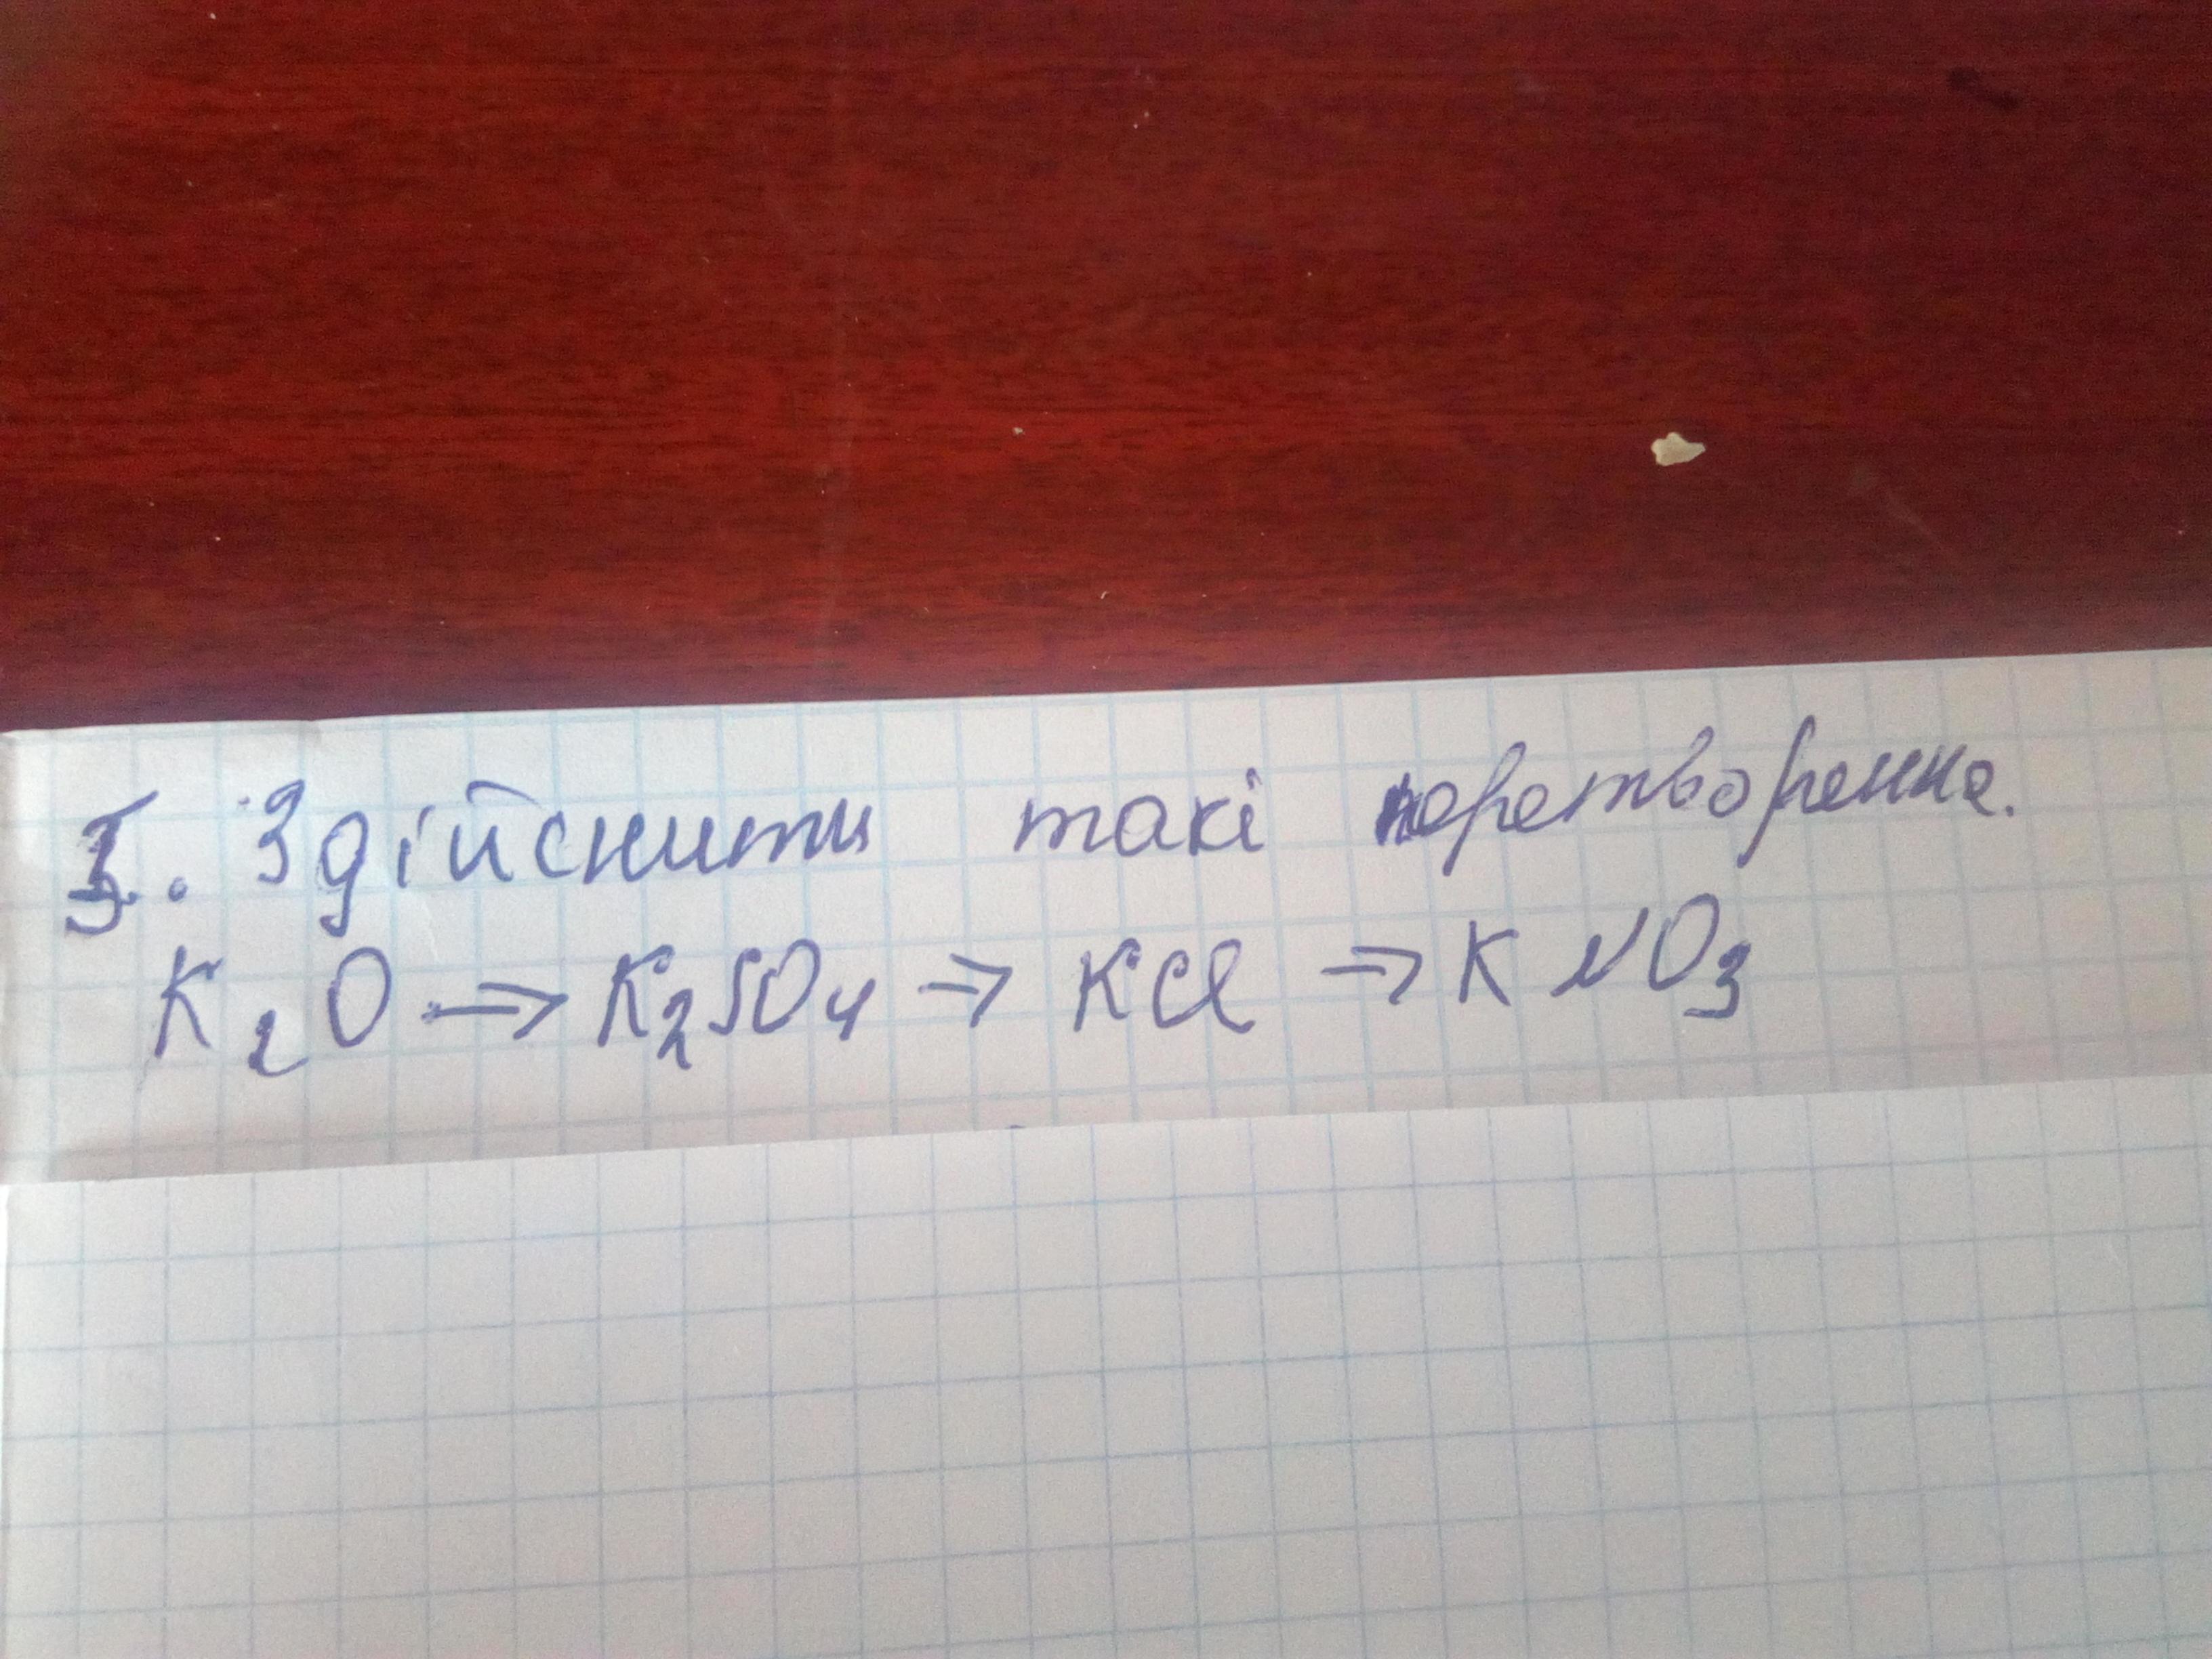 3. Здійснити такі перетворення.
K₂O → K₂SO₄ ⇒ KCl ⇒ KNO₃